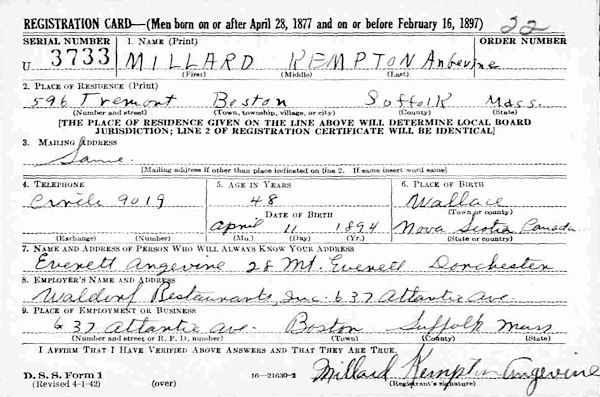 REGISTRATION CARD—(Men born on or after April 28, 1877 and on or before February 16, 1897) 32
SERIAL NUMBER 1. NAME (Print) ORDER NUMBER
U 3733 MILLARD KEMPTON Angevine
(First) (Middle) (Last)
2. PLACE OF RESIDENCE (Print)
596 Tremont Boston Suffolk Mass.
(Number and street) (Town, township, village, or city) (County) (State)
[THE PLACE OF RESIDENCE GIVEN ON THE LINE ABOVE WILL DETERMINE LOCAL BOARD
JURISDICTION; LINE 2 OF REGISTRATION CERTIFICATE WILL BE IDENTICAL]
3. MAILING ADDRESS
Same.
[Mailing address if other than place indicated on line 2. If same insert word same]
4. TELEPHONE 5. AGE IN YEARS 6. PLACE OF BIRTH
Circle 9019 48 Wallace
DATE OF BIRTH (Town or county)
April 11 1894 Nova Scotia Canada
(Exchange) (Number) (Mo.) (Day) (Yr.) (State or country)
7. NAME AND ADDRESS OF PERSON WHO WILL ALWAYS KNOW YOUR ADDRESS
Everett Angevine 28 Mt. Everett Dorchester
8. EMPLOYER'S NAME AND ADDRESS
Waldorf Restaurants, Inc. 637 Atlantic Ave.
9. PLACE OF EMPLOYMENT OR BUSINESS
637 Atlantic Ave. Boston Suffolk Mass
(Number and street or R. F. D. number) (Town) (County) (State)
I AFFIRM THAT I HAVE VERIFIED ABOVE ANSWERS AND THAT THEY ARE TRUE.
D. S. S. Form 1
(Revised 4-1-42) (over) 16—21630-2 Millard Kempton Angevine
(Registrant's signature)